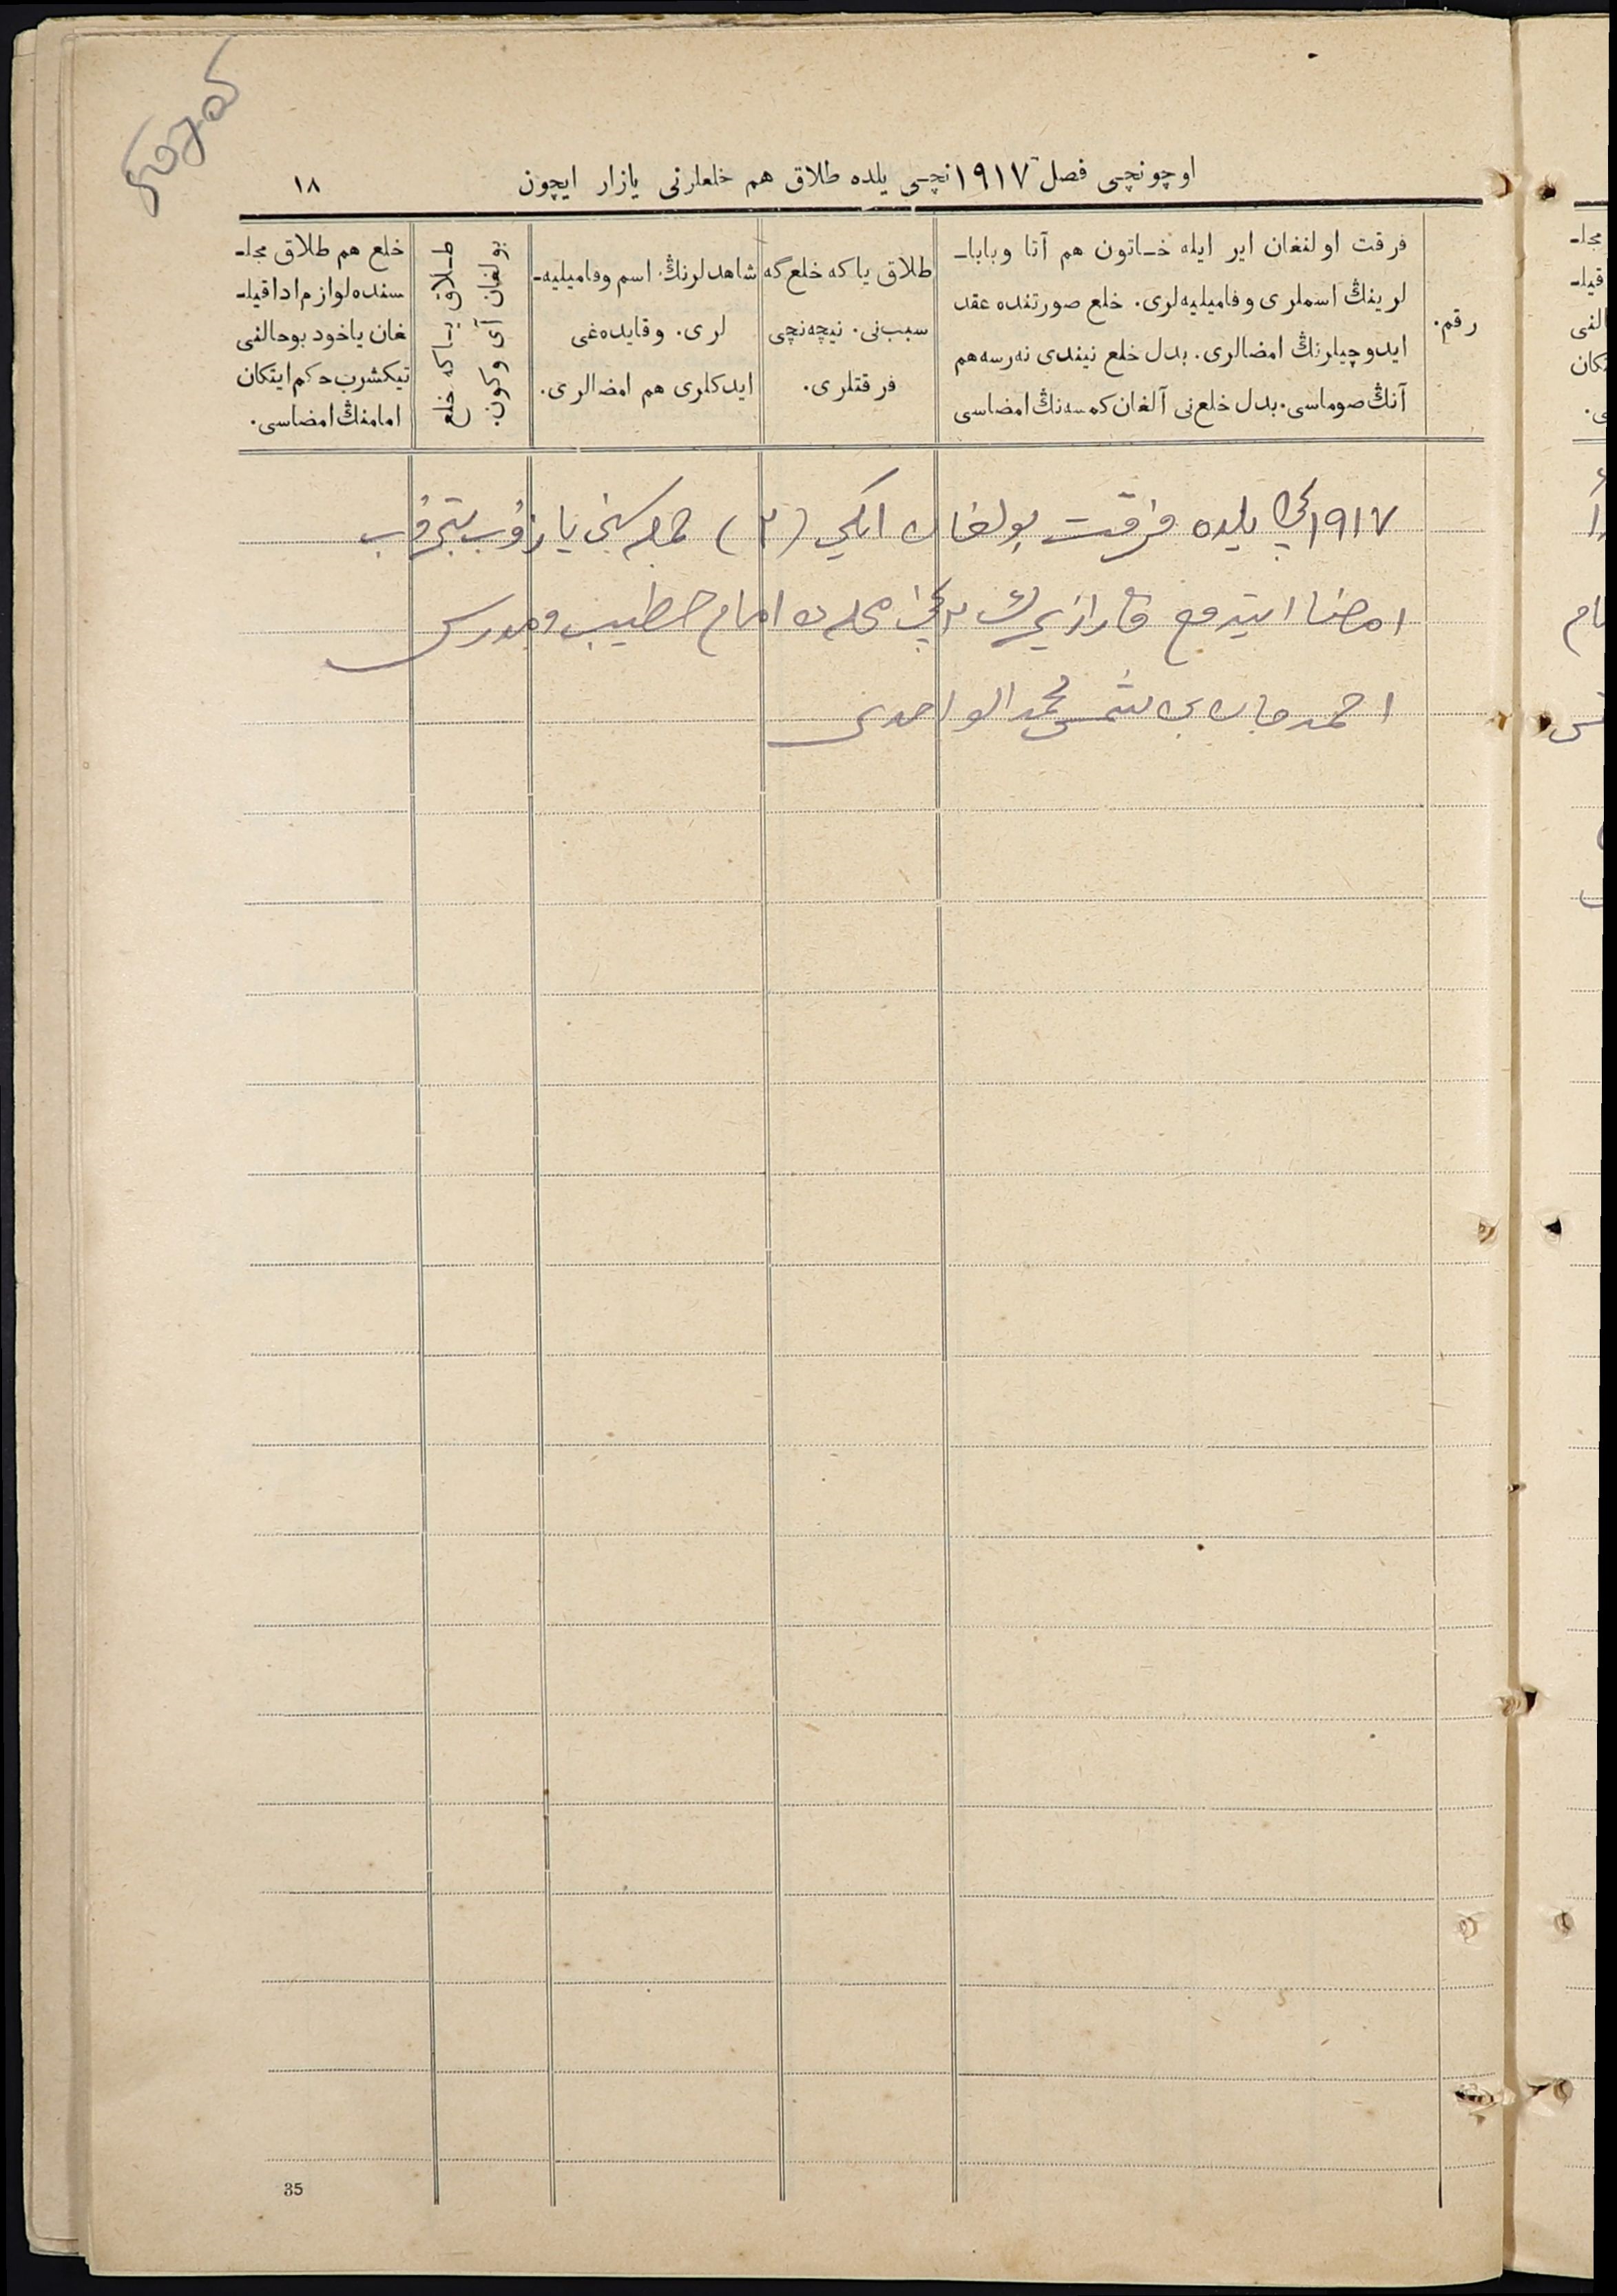 اوچونچی فصل ١٩١٧ نچی یلده طلاق هم خلعلرنی یازار ایچون
١٨
رقم.
فرقت اولنغان ایر ایله خـاتون هم آتا و باباـ
لرینڭ اسملری و فامیلیه‌لری. خلع صورتنده عقد
ایدوچیلرنڭ امضالری. بدل خلع نیندی نه‌رسه هم
آنڭ صوماسی. بدل خلع‌نی آلغان کمسه‌نڭ امضاسی
طلاق یا که خلع گه
سبب‌نی. نیچه‌نچی
فرقتلری.
شاهدلرنڭ اسم و فامیلیه‌ـ
لری. و قایده‌غی
ایدکلری هم امضالری.
طـلاق یـا که خلع
بولغان آی و کون.
خلع هم طلاق مجلـ
سنده لوازم ادا قیلـ
غان یاخود بو حالنی
تیکشرب حکم ایتکان
امامنڭ امضاسی.
١٩١٧ نچی یلده فرقت بولغان ایکی (٢) جمله‌سنی یازوب بتروب
امضا ایتدم محله امام خطیب و مدرس
احمدجان بن شمس محمد الواحدی
35